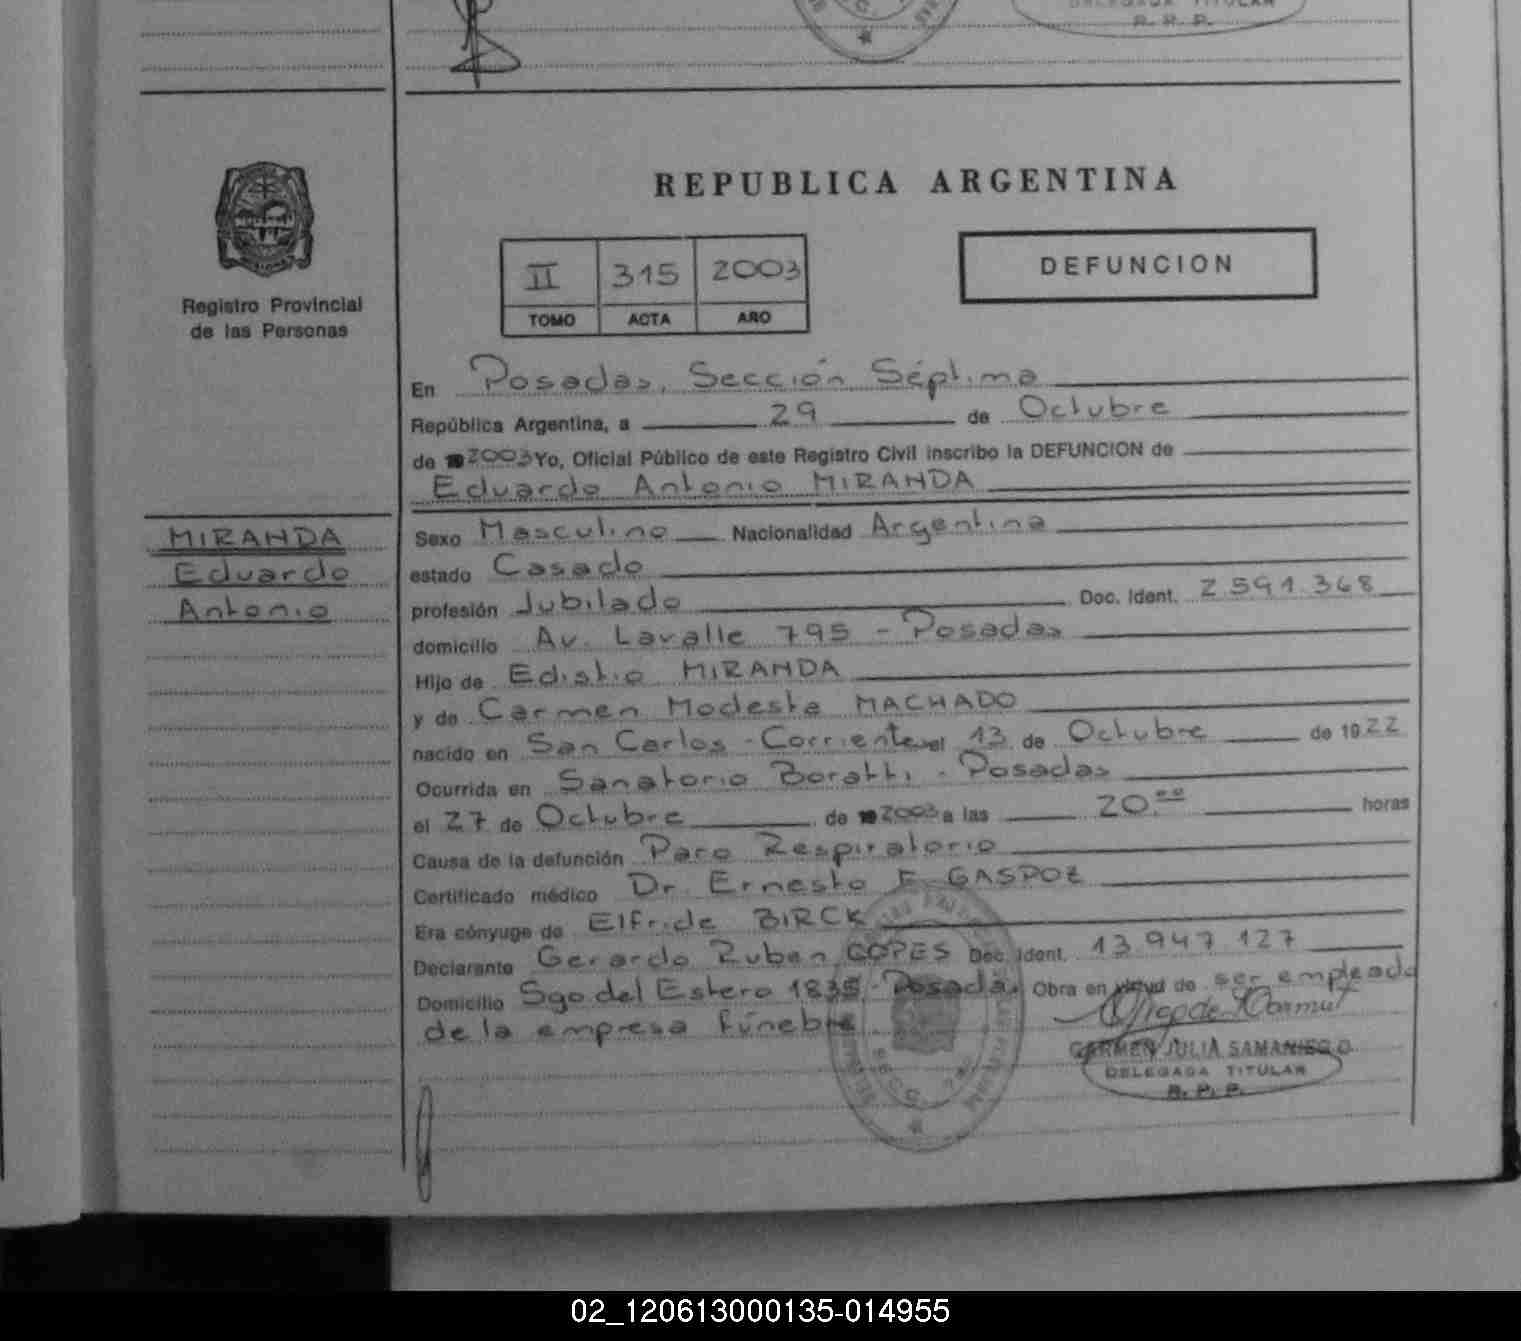 DELEGADA TITULAR
R. P. P.
REPUBLICA ARGENTINA
II 315 2003
TOMO ACTA AÑO
DEFUNCION
Registro Provincial
de las Personas
En Posadas, Sección Séptima
República Argentina, a 29 de Octubre
de 2003 Yo, Oficial Público de este Registro Civil inscribo la DEFUNCION de
Eduardo Antonio MIRANDA
MIRANDA
Eduardo
Antonio
Sexo Masculino Nacionalidad Argentina
estado Casado
profesión Jubilado Doc. Ident. 2.591.368
domicilio Av. Lavalle 795 - Posadas
Hijo de Edistio MIRANDA
y de Carmen Modesta MACHADO
nacido en San Carlos - Corrientes el 13 de Octubre de 1922
Ocurrida en Sanatorio Boratti - Posadas
el 27 de Octubre de 2003 a las 20.00 horas
Causa de la defunción Paro Respiratorio
Certificado médico Dr. Ernesto F. GASPOZ
Era cónyuge de Elfride BIRCK
Declarante Gerardo Ruben COPES Doc. Ident. 13.947.127
Domicilio Sgo del Estero 1835 - Posadas Obra en virtud de ser empleado
de la empresa fúnebre
CARMEN JULIA SAMANIEGO
DELEGADA TITULAR
R. P. P.
02_120613000135-014955